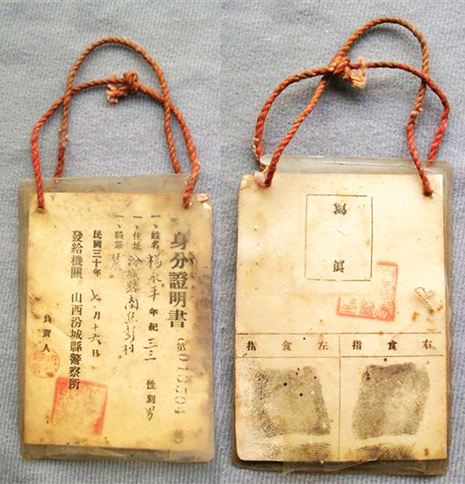 身分證明書 (第013504
一、姓名 楊 年紀 三三 性別 男
一、住址 汾城縣南 村
一、職業 農
民國三十年 七月十六日
發給機關 山西汾城縣警察所
負責人
寫真
右食指 左食指